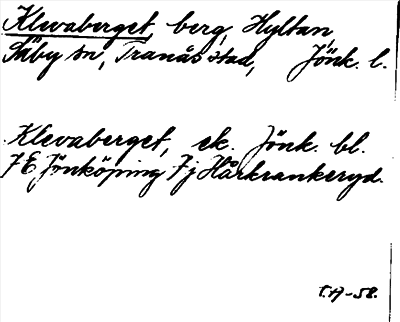 Klevaberget, berg, Hyltan,
Säby sn, Tranås stad, Jönk. l.
Klevaberget, ek. Jönk. bl.
7E Jönköping 7j Hårkrankeryd.
T.A-58.